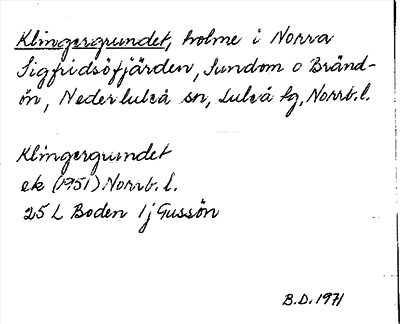 Klingergrundet, holme i Norra
Sigfridsöfjärden, Sundom o Bränd-
ön, Nederluleå sn, Luleå tg, Norrb.l.
Klingergrundet
ek (1951) Norrb. l.
25 L Boden 1j Gussön
B.D. 1971